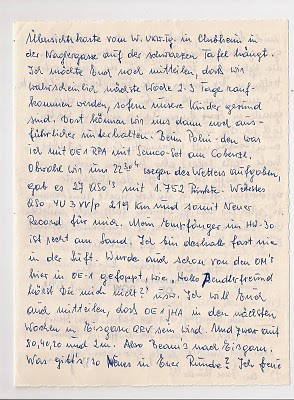 Übersichtskarte vom W. UKW-Tg. in Clubheim in
der Naglergasse auf der schwarzen Tafel hängt.
Ich möchte Euch noch mitteilen, dass wir
wahrscheinlich nächste Woche 2-3 Tage rauf-
kommen werden, sofern unsere Kinder gesund
sind. Dort können wir uns dann noch aus-
führlicher unterhalten. Beim Polni-den war
ich mit OE1 RPA mit Semco-Set am Cobenzl.
Obwohl wir um 22³⁰ʰ wegen des Wetters aufgaben,
gab es 27 QSO's mit 1.752 Punkte. Weitestes
QSO YU3 VV/P 219 Km und somit Neuer
Record für mich. Mein Empfänger im HW-30
ist recht am Sand. Ich bin deshalb fast nie
in der Luft. Wurde auch schon von den OM's
hier in OE-1 gefoppt, wie "Hallo Pendlerfreund
hörst Du mich nicht?" usw. Ich will Euch
auch mitteilen, dass OE1JHA in den nächsten
Wochen in Eisgarn QRV sein wird. Und zwar auf
80, 40, 20 und 2m. Also Beam's nach Eisgarn.
Was gibt's so Neues in Euer Runde? Ich freue